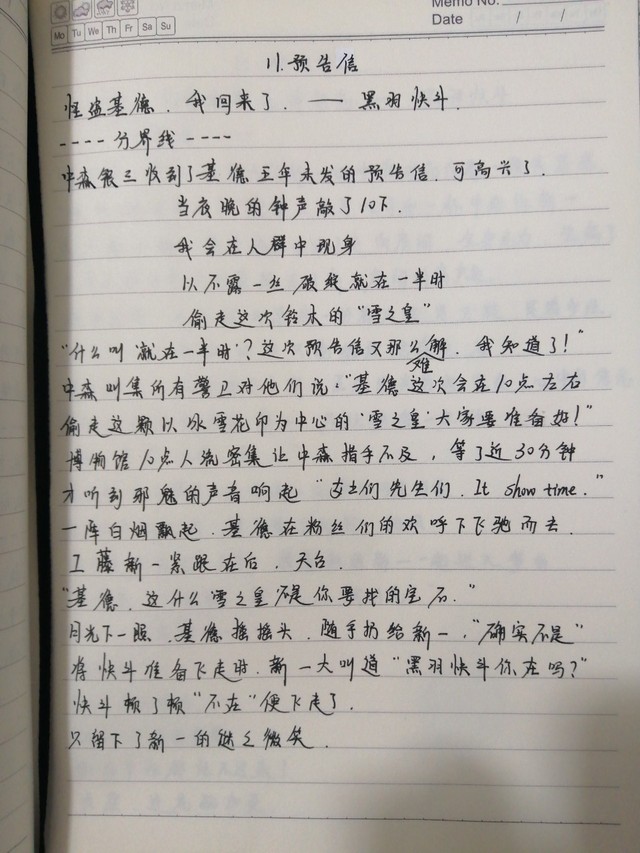 Memo No.
Mo Tu We Th Fr Sa Su
Date / /
11.预告信
怪盗基德.我回来了.——黑羽快斗.
----分界线----
中森银三收到了基德五年未发的预告信.可高兴了.
当夜晚的钟声敲了10下.
我会在人群中现身
以不露一丝破绽就在一半时
偷走这次铃木的“雪之皇”
“什么叫‘就在一半时’?这次预告信又那么难解.我知道了!”
中森叫集所有警卫对他们说:“基德这次会在10点左右
偷走这颗以冰雪花印为中心的‘雪之皇’大家要准备好!”
博物馆10点人流密集让中森措手不及,等了近30分钟
才听到邪魅的声音响起“女士们先生们.It show time.”
一阵白烟飘起.基德在粉丝们的欢呼下飞驰而去.
工藤新一紧跟在后.天台.
“基德.这什么‘雪之皇’不是你要找的宝石.”
月光下一照.基德摇摇头.随手扔给新一.“确实不是”
将快斗准备飞走时.新一大叫道“黑羽快斗你在吗?”
快斗顿了顿“不在”便飞走了.
只留下了新一的谜之微笑.